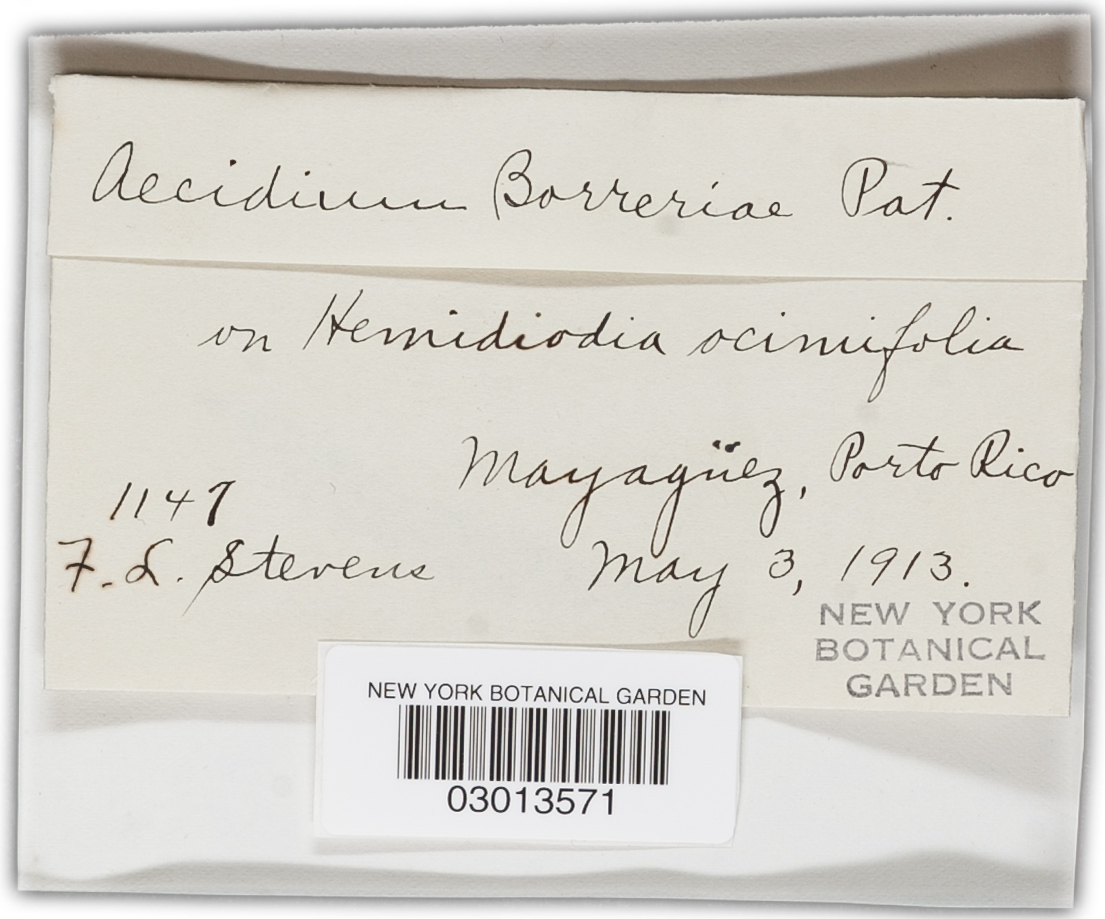 Aecidium Borreriae Pat.
on Hemidiodia ocimifolia
Mayagüez, Porto Rico
1147
F. L. Stevens May 3, 1913.
NEW YORK
BOTANICAL
GARDEN
NEW YORK BOTANICAL GARDEN
03013571